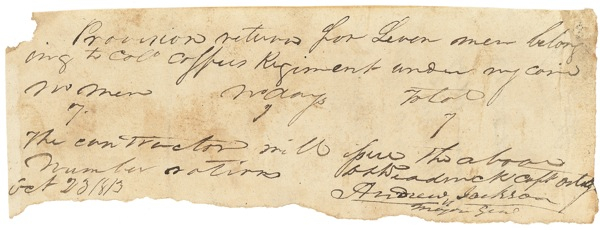 Provision return for Seven men belong
ing to Col° Coffees Regiment under my com
No men No days Total
7. 9 7
The contractor will issue the above
Number rations
Oct 23 1813
Andrew Jackson
Major Genl